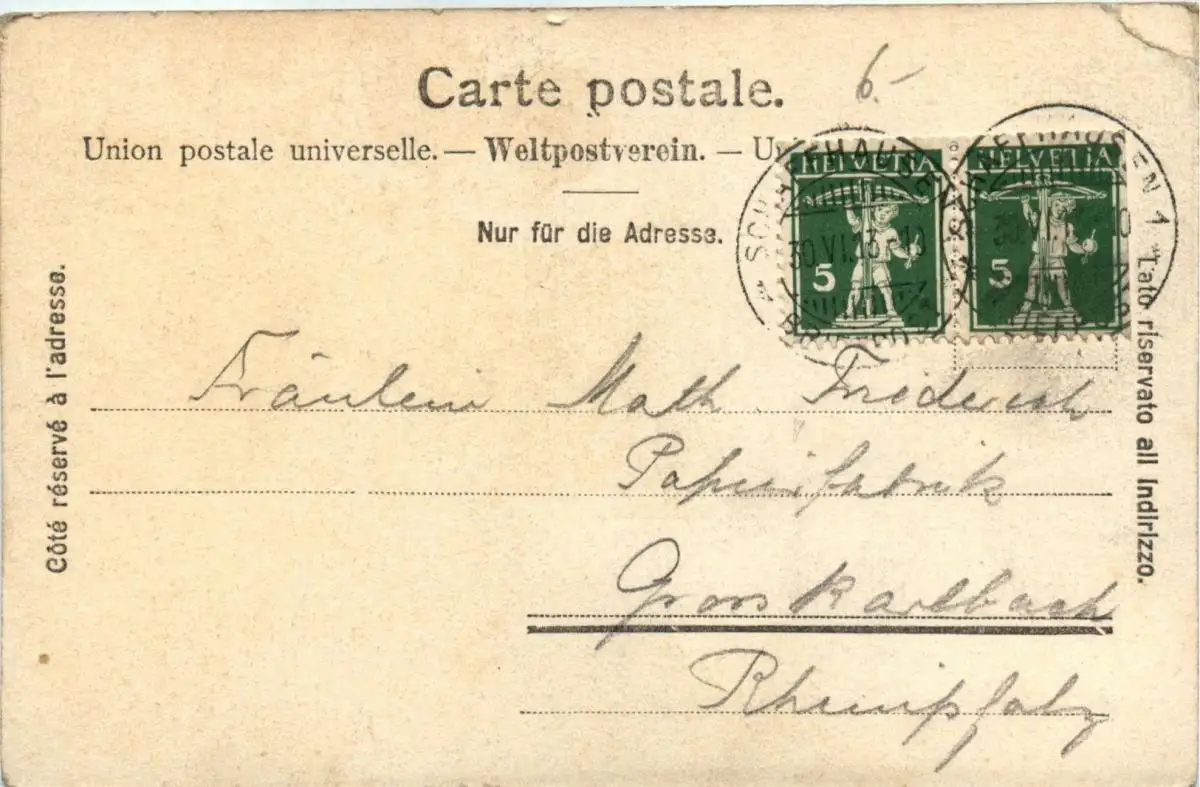 6.-
Carte postale.
Union postale universelle. — Weltpostverein. — Un
Nur für die Adresse.
HELVETIA
5
HELVETIA
5
SCHAFFHAUSEN
30.VI.13.-10
BRIEF
SCHAFFHAUSEN 1
30.VI. 10
BRIEF
Côté réservé à l'adresse.
Lato riservato all Indirizzo.
Fräulein Math. Friederich
Papierfabrik
Grosskarlbach
Rheinpfalz